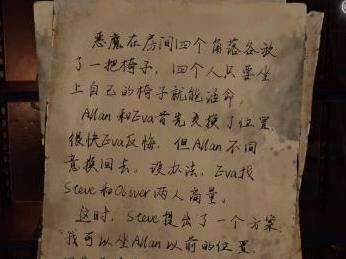 恶魔在房间四个角落各放
了一把椅子，四个人只要坐
上自己的椅子就能活命，
Allan和Eva首先交换了位置
很快Eva反悔，但Allan不同
意换回去。没办法，Eva找
Steve和Oliver两人商量。
这时，Steve提出了一个方案，
我可以坐Allan以前的位置